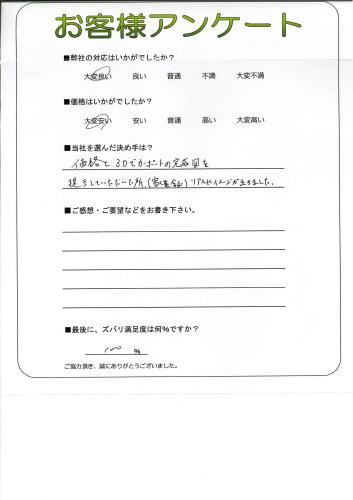 お客様アンケート
■弊社の対応はいかがでしたか？
大変良い 良い 普通 不満 大変不満
■価格はいかがでしたか？
大変安い 安い 普通 高い 大変高い
■当社を選んだ決め手は？
価格と3Dでカーポートの完成図を
提示していただいた所。(家 含む) リアルにイメージが出きました。
■ご感想・ご要望などをお書き下さい。
■最後に、ズバリ満足度は何％ですか？
100 %
ご協力頂き、誠にありがとうございました。